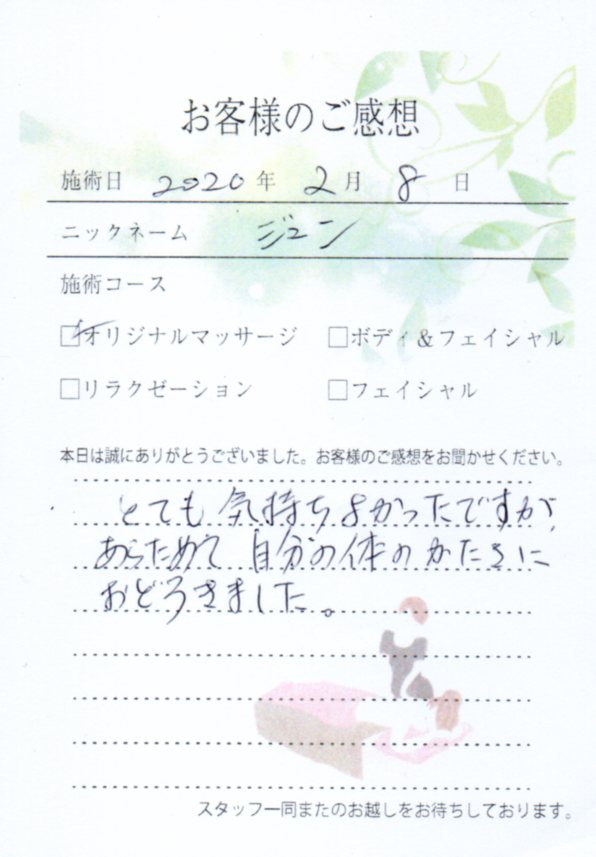 お客様のご感想
施術日 2020年 2月 8日
ニックネーム ジュン
施術コース
☑オリジナルマッサージ □ボディ&フェイシャル
□リラクゼーション □フェイシャル
本日は誠にありがとうございました。お客様のご感想をお聞かせください。
とても気持ちよかったですが、
あらためて自分の体のかたさに
おどろきました。
スタッフ一同またのお越しをお待ちしております。